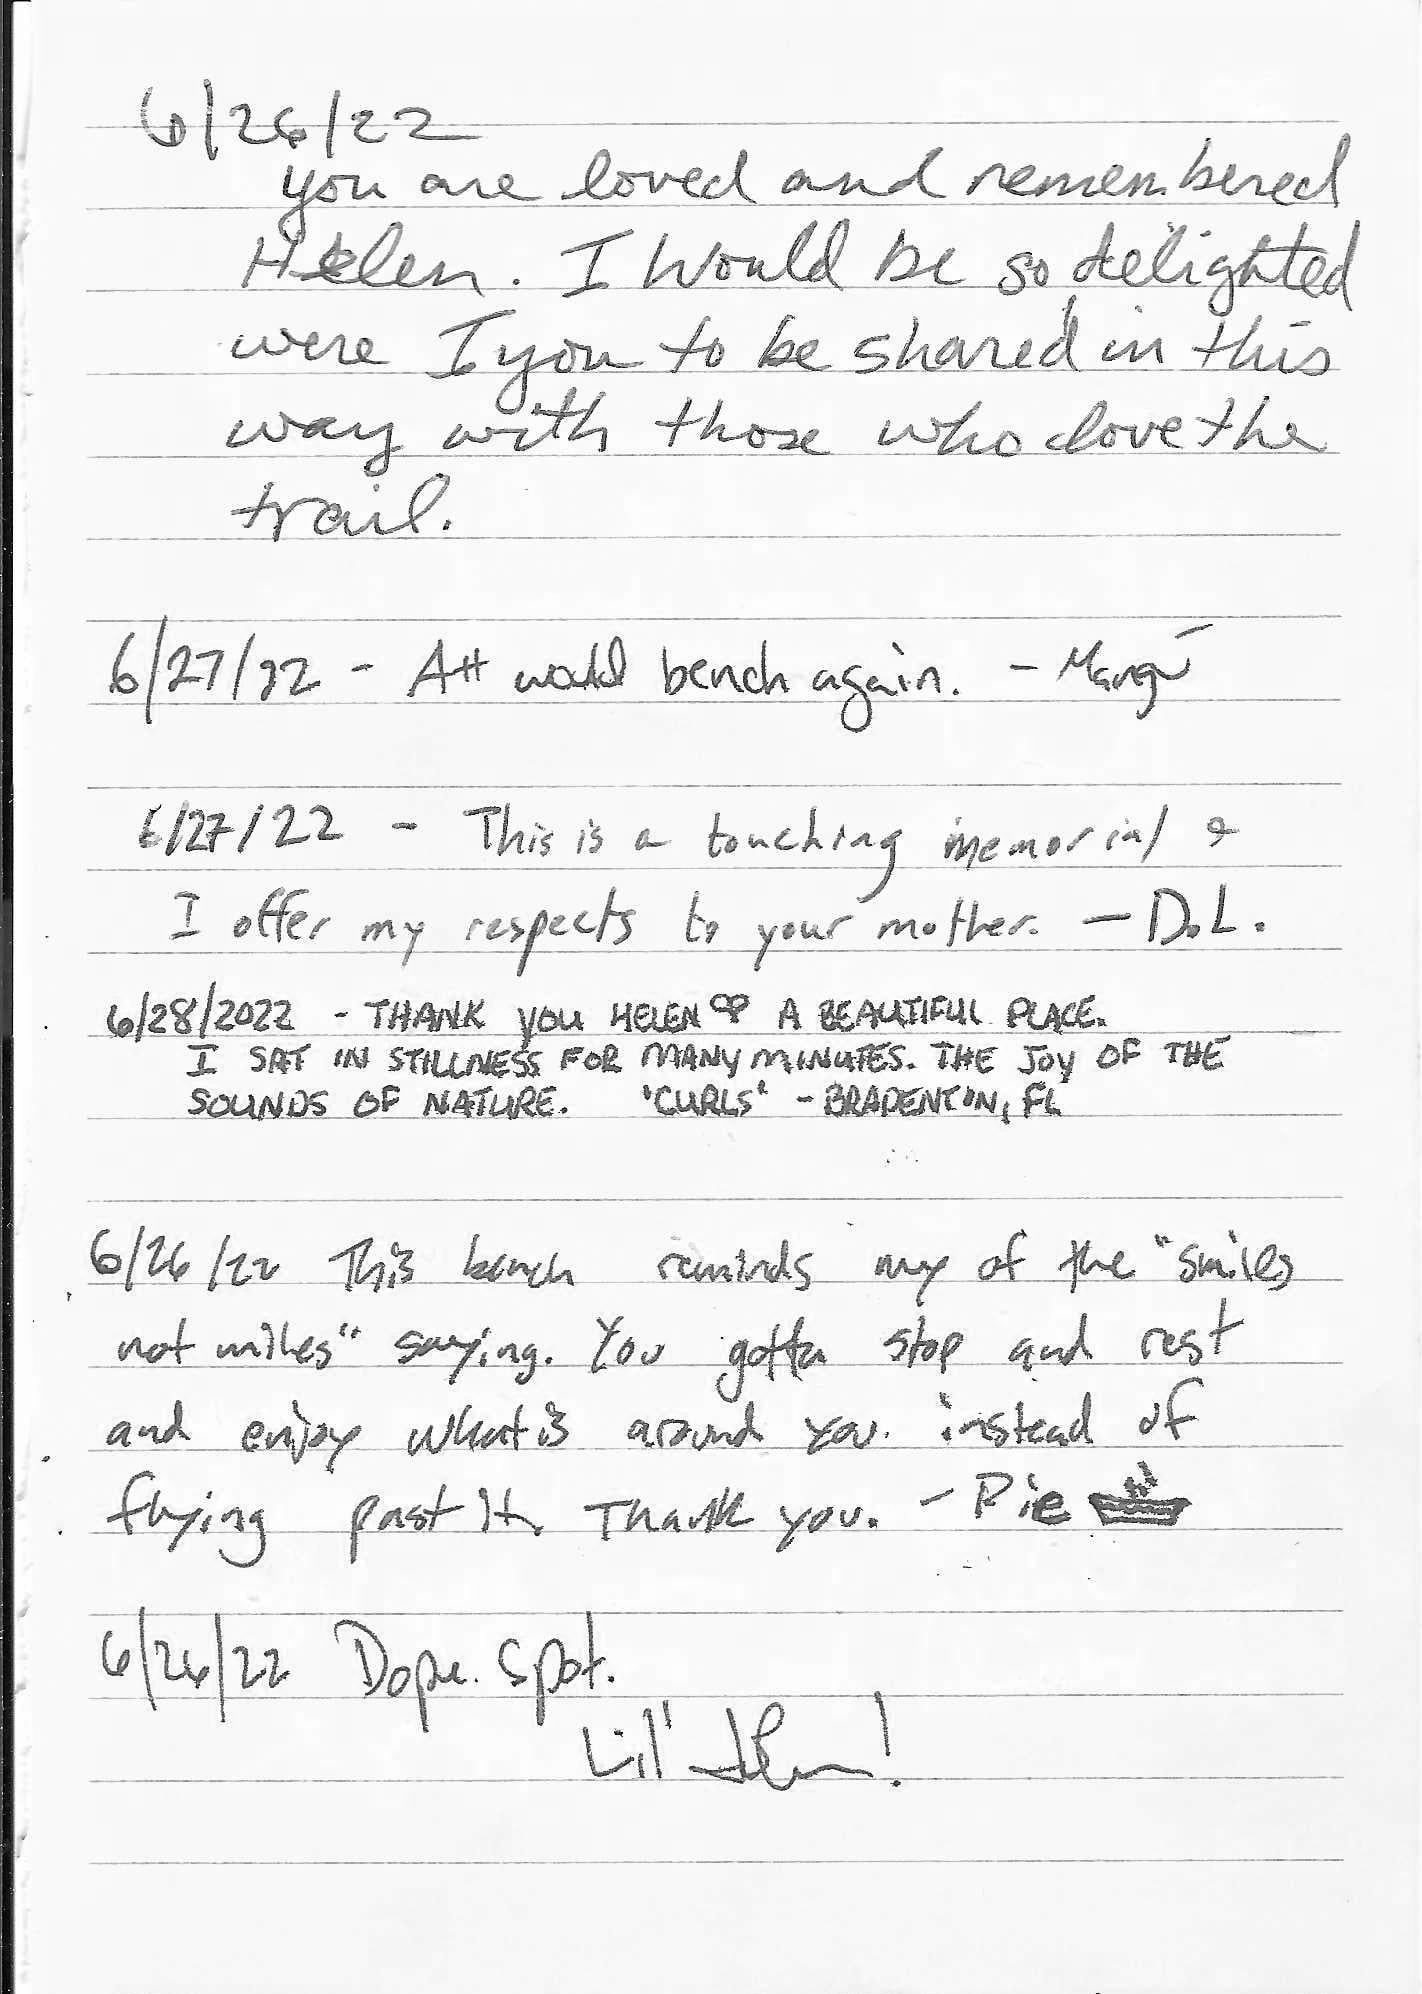 6/26/22
you are loved and remembered
Helen. I would be so delighted
were I you to be shared in this
way with those who love the
trail.
6/27/22 - A++ would bench again. -
6/27/22 - This is a touching memorial &
I offer my respects to your mother. - D.L.
6/28/2022 - THANK YOU HELEN A BEAUTIFUL PLACE.
I SAT IN STILLNESS FOR MANY MINUTES. THE JOY OF THE
SOUNDS OF NATURE. 'CURLS' - BRADENTON, FL
6/26/22 This bench reminds my of the "smiles
not miles" saying. You gotta stop and rest
and enjoy what is around you instead of
flying past it. Thank you. - Pie
6/26/22 Dope. Spot.
Lil'